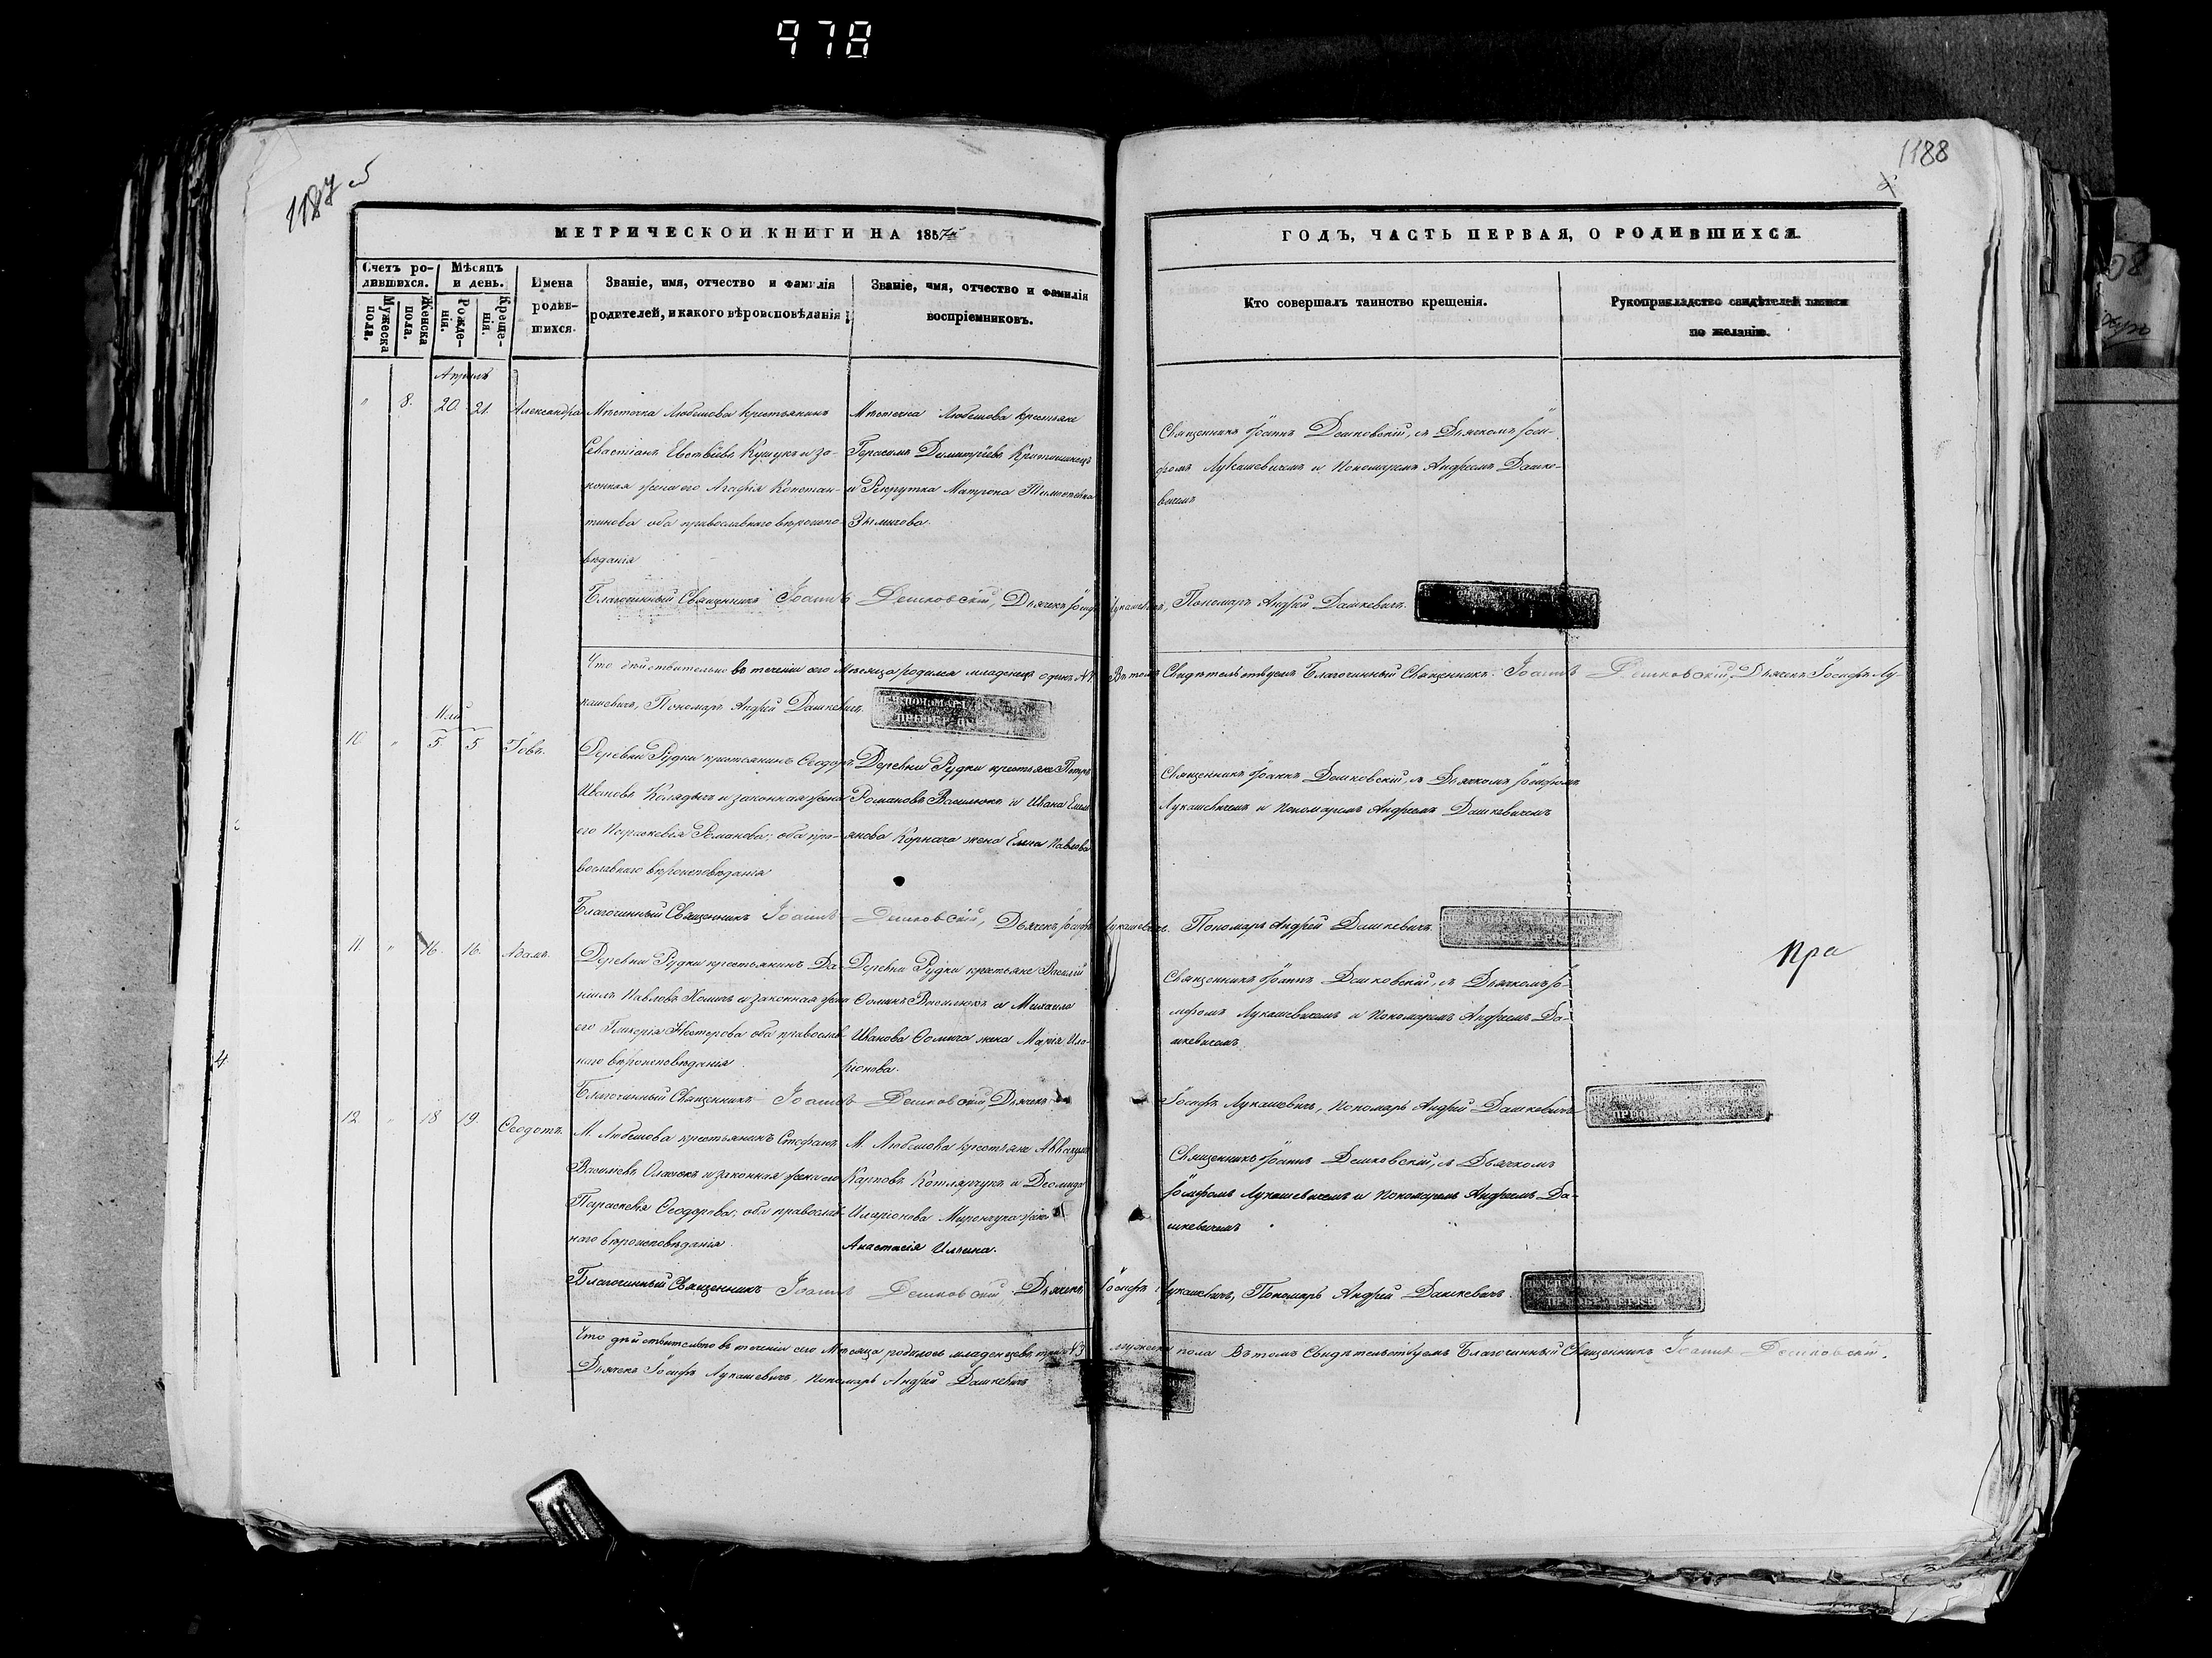 978
1187 об
1188
МЕТРИЧЕСКОЙ КНИГИ НА 1857й
ГОДЪ, ЧАСТЬ ПЕРВАЯ, О РОДИВШИХСЯ.
Счетъ ро-
дившихся.
Мужеска
пола.
Женска
пола.
Мѣсяцъ
и день.
Рожде-
нія.
Креще-
нія.
Имена
родив-
шихся.
Званіе, имя, отчество и фамилія
родителей, и какого вѣроисповѣданія.
Званіе, имя, отчество и фамилія
воспріемниковъ.
Кто совершалъ таинство крещенія.
Рукоприкладство свидѣтелей записи
по желанію.
Апрѣль
" 8. 20. 21. Александра
Мѣстечка Любешова крестьянинъ
Севастіанъ Евстѣевъ Кушукъ и за-
конная жена его Агафія Констан-
тинова оба православнаго вѣроиспо-
вѣданія
Мѣстечка Любешова крестьяне
Герасимъ Димитріевъ
и Рекрутка Матрона
Священникъ Іоаннъ Дешковскій, съ Дьячкомъ Іоси-
фомъ Лукашевичемъ и Пономаремъ Андреемъ Дашке-
вичемъ
Благочинный Священникъ Іоаннъ Дешковскій, Дьячекъ Іосифъ Лукашевичъ, Пономарь Андрей Дашкевичъ.
Что дѣйствительно въ теченіи сего Мѣсяца родился младенецъ одинъ №1. Въ томъ Свидѣтельствуемъ Благочинный Священникъ Іоаннъ Дешковскій, Дьячекъ Іосифъ Лу-
кашевичъ, Пономарь Андрей Дашкевичъ.
Май
10. " 5 5 Іовъ.
Деревни Рудки крестьянинъ Ѳеодоръ
Ивановъ Колядычъ и законная жена
его Параскевія Романова; оба пра-
вославнаго вѣроисповѣданія
Деревни Рудки крестьяне Петръ
Романовъ Василюкъ и Ивана Емел-
янова Корнача жена Елена Павлова
Священникъ Іоаннъ Дешковскій, съ Дьячкомъ Іосифомъ
Лукашевичемъ и Пономаремъ Андреемъ Дашкевичемъ
Благочинный Священникъ Іоаннъ Дешковскій, Дьячекъ Іосифъ Лукашевичъ. Пономарь Андрей Дашкевичъ.
11. " 16. 16. Адамъ.
Деревни Рудки крестьянинъ Да-
ніилъ Павловъ Хомичъ и законная жена
его Гликерія Нестерова оба православ-
наго вѣроисповѣданія.
Деревни Рудки крестьяне Василій
Ѳоминъ Василюкъ и Михаила
Иванова Ѳомича жена Марія Ила-
ріонова.
Священникъ Іоаннъ Дешковскій, съ Дьячкомъ Іо-
сифомъ Лукашевичемъ и Пономаремъ Андреемъ Да-
шкевичемъ
Пра
Благочинный Священникъ Іоаннъ Дешковскій Дьячекъ Іосифъ Лукашевичъ, Пономарь Андрей Дашкевичъ
12. " 18 19. Ѳеодотъ.
М. Любешова крестьянинъ Стефанъ
Васильевъ и законная жена его
Параскевія Ѳеодорова; оба православ-
наго вѣроисповѣданія.
М. Любешова крестьяне Аввакумъ
Карповъ Котлярчукъ и Деомида
Иларіонова Миренчука жена
Анастасія Ильина.
Священникъ Іоаннъ Дешковскій, съ Дьячкомъ
Іосифомъ Лукашевичемъ и Пономаремъ Андреемъ Да-
шкевичемъ
Благочинный Священникъ Іоаннъ Дешковскій. Дьячекъ Іосифъ Лукашевичъ, Пономарь Андрей Дашкевичъ.
Что дѣйствительно въ теченіи сего Мѣсяца родилось младенцевъ три №3 мужеска пола Въ томъ Свидѣтельствуемъ Благочинный Священникъ Іоаннъ Дешковскій.
Дьячекъ Іосифъ Лукашевичъ, Пономарь Андрей Дашкевичъ